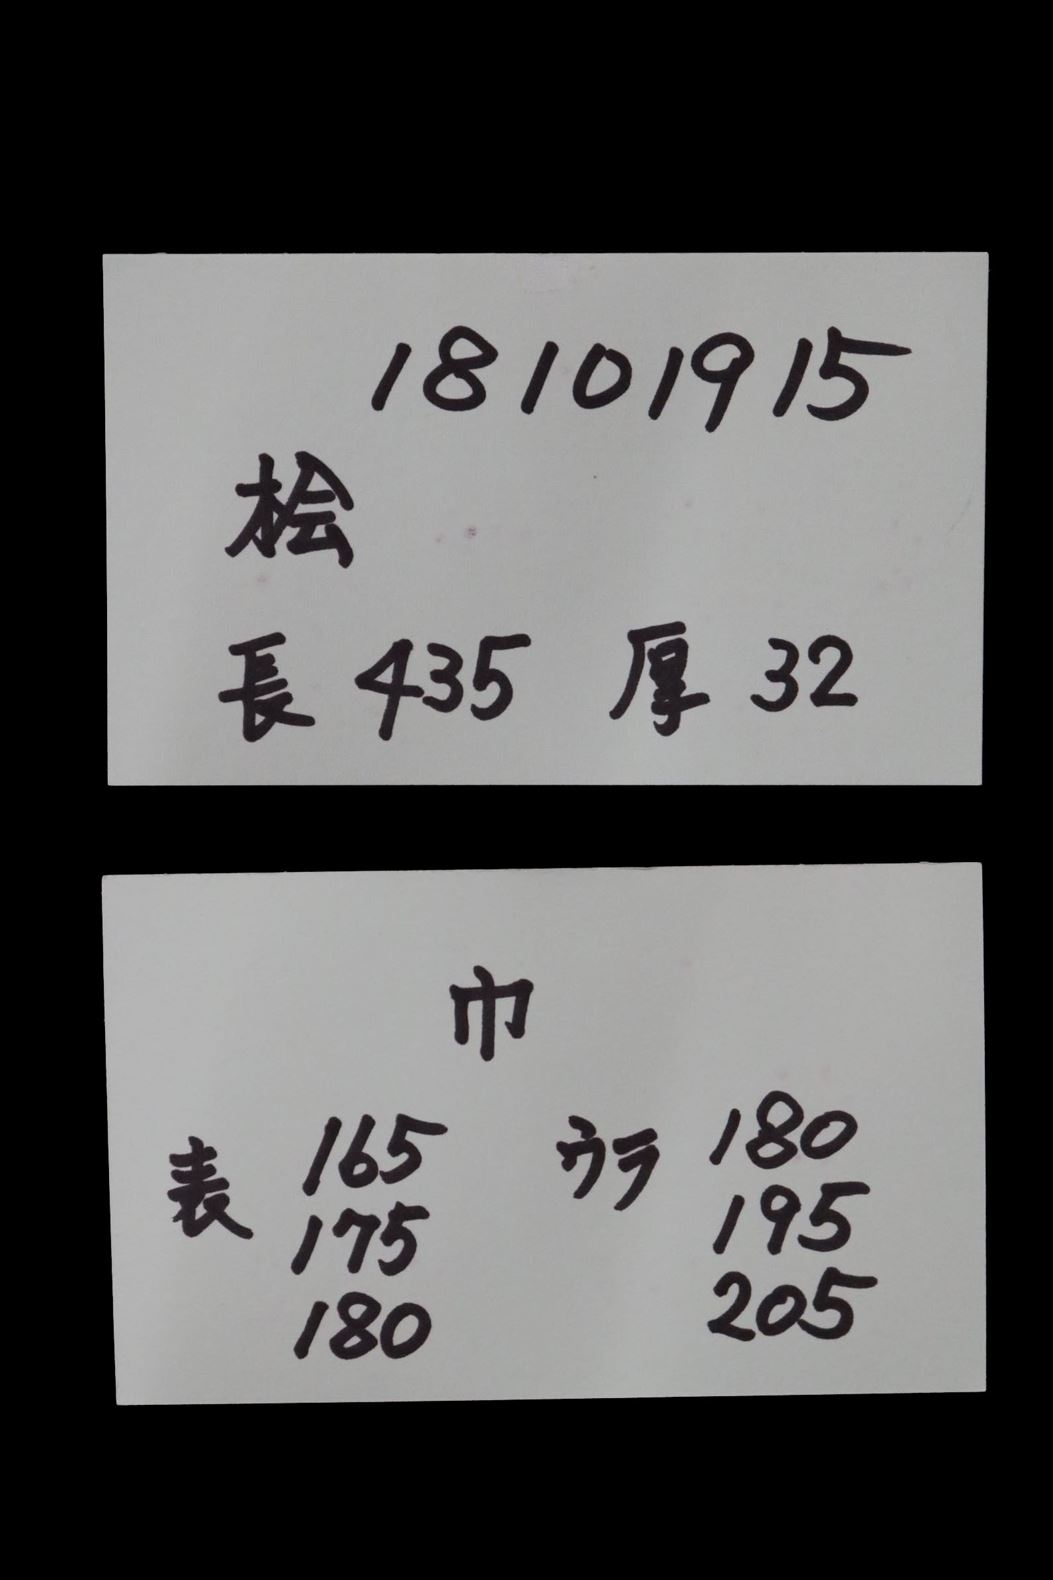 18101915
桧
長 435 厚 32
巾
表 165 ウラ 180
175 195
180 205